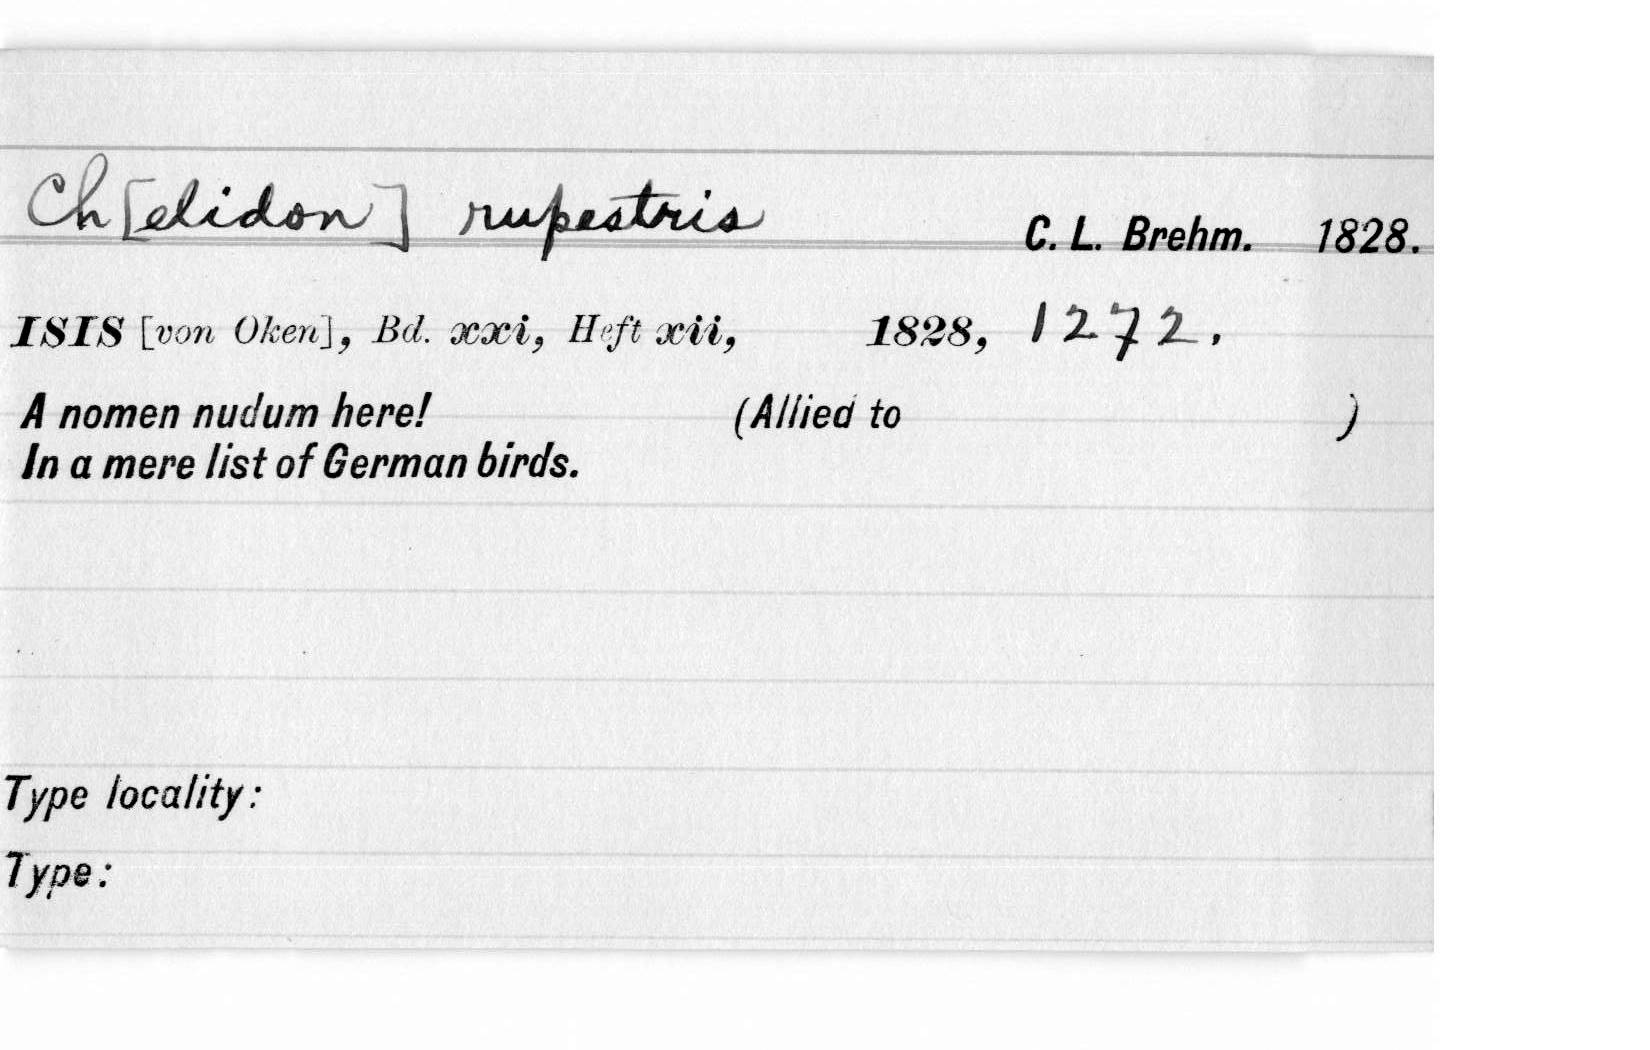 Ch[elidon] rupestris C. L. Brehm. 1828.
ISIS [von Oken], Bd. xxi, Heft xii, 1828, 1272.
A nomen nudum here! (Allied to )
In a mere list of German birds.
Type locality:
Type: